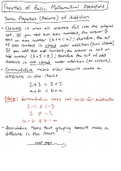 Properties of Basic Mathematical Operations
Some Properties (Axioms) of Addition
• Closure is when all answers fall into the original
set. If you add two even numbers, the answer is
still an even number (2+4=6); therefore, the set
of even numbers is closed under addition (has closure).
If you add two odd numbers, the answer is not an
odd number (3+5=8); therefore, the set of odd
numbers is not closed under addition (no closure).
• Commutative means order doesn't make a
difference in the result
2+3 = 3+2
a+b = b+a
Note: Commutative does not hold for subtraction
3-1 ≠ 1-3
2 ≠ -2
a-b ≠ b-a
• Associative means that grouping doesn't make a
difference in the result